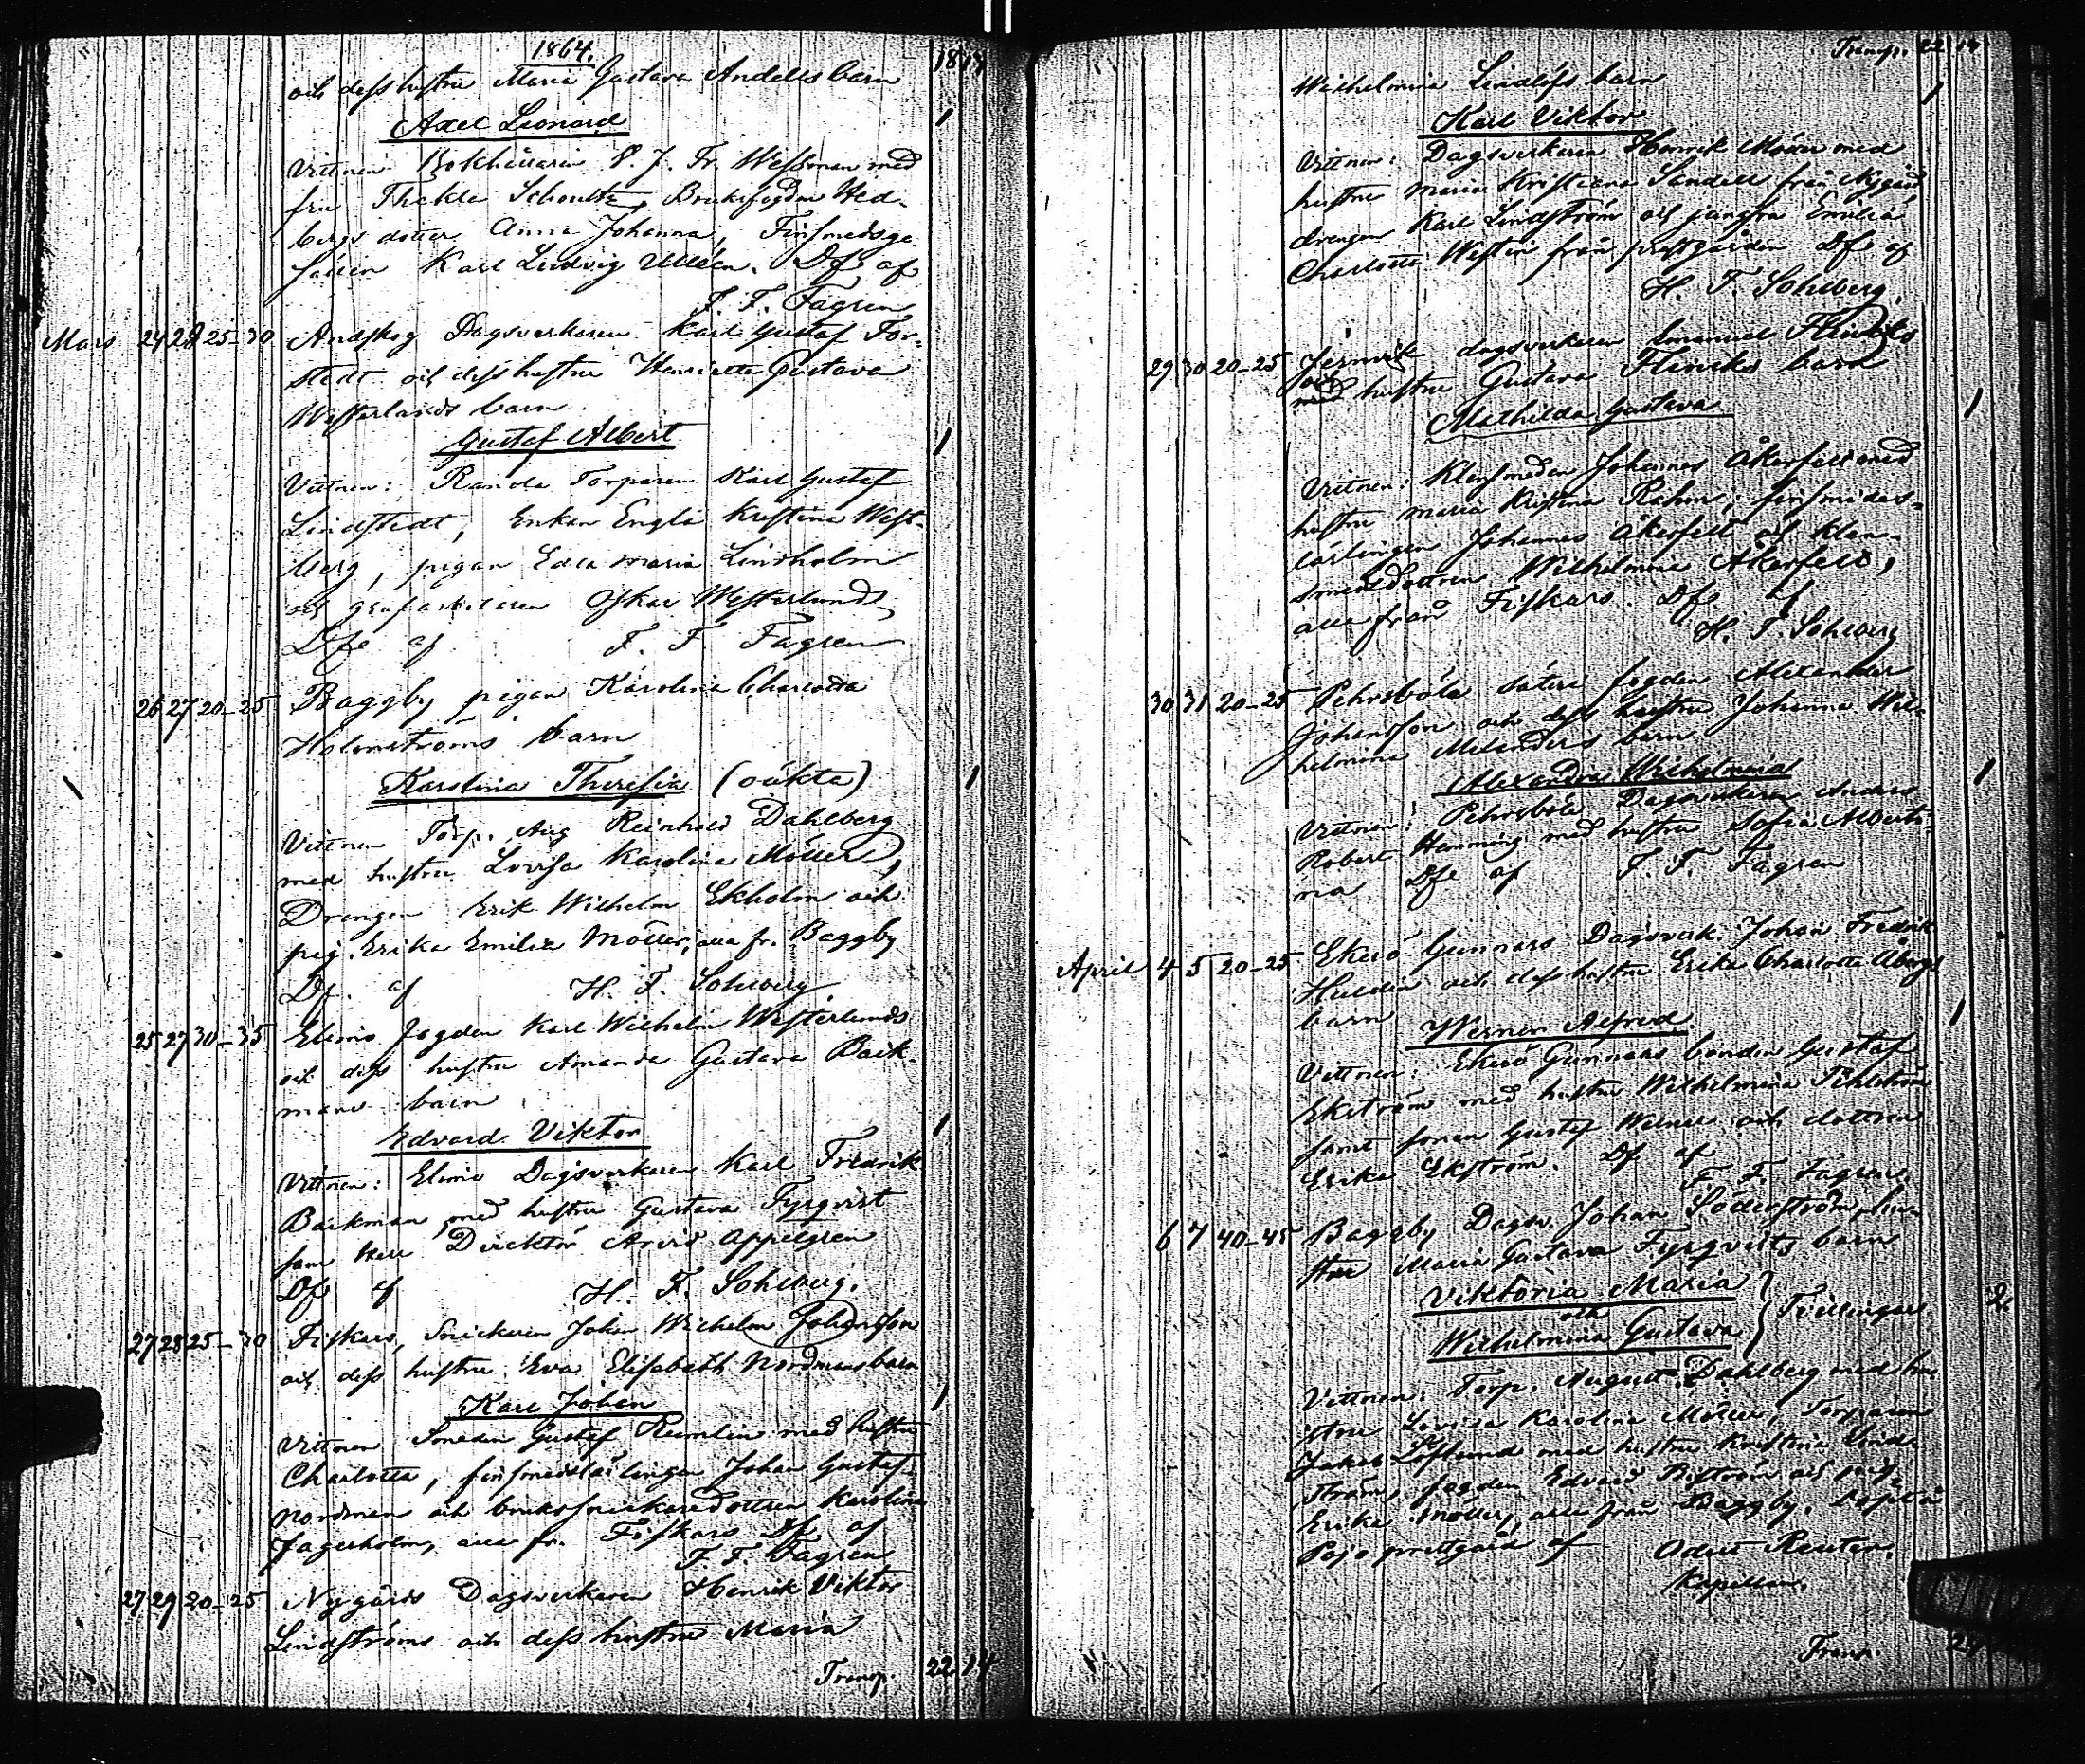 1864.
18 14
och dess hustru Maria Gustava Andells barn
Axel Leonard
1
Vittnen Bokhållaren P. J. Fr. Wessman med
fru Thekla Schoultz, Bruksfogden Hed-
bergs dotter Anna Johanna, Finsmedsge-
sällen Karl Ludvig Uldén. Df. af
F. F. Fagren
Mars 24 28 25-30 Andskog Dagsverkaren Karl Gustaf For-
stedt och dess hustru Henrietta Gustava
Westerlunds barn
Gustaf Albert
1
Vittnen: Randa Torparen Karl Gustaf
Lindstedt, Enkan Engla Kristina West-
berg, pigan Edla Maria Lindholm
och Oskar Westerlund
Dfe af F. F. Fagren
26 27 20-25 Baggby pigan Karolina Charlotta
Holmströms barn
Karolina Theresia (oäkta)
1
Vittnen Torp. Aug Reinhold Dahlberg
med hustru Lovisa Karolina Möller,
Drengen Erik Wilhelm Ekholm och
pig. Erika Emilia Möller, alla fr. Baggby
Df. af H. F. Sohlberg
25 27 30-35 Elimo fogden Karl Wilhelm Westerlunds
och dess hustru Amanda Gustava Back-
mans barn
Edvard Viktor
1
Vittnen: Elimo Dagsverkaren Karl Fredrik
Backman med hustru Gustava Fyrqvist
samt Herr Direktör Arvid Appelgren
Dfe af H. F. Sohlberg.
27 28 25-30 Fiskars, Snickaren Johan Wilhelm Johansson
och dess hustru Eva Elisabeth Nordmans barn
Karl Johan
1
Vittnen Smeden Gustaf Remlin med hustru
Charlotta, finsmedslärlingen Johan Gustaf
Nordman och brukssnickaredottren Karolina
Fagerholm, alla fr. Fiskars Df. af
F. F. Fagren
27 29 20-25 Nygårds Dagsverkaren Henrik Viktor
Lindströms och dess hustru Maria
Transp. 22 14
Transp. 22 14
Wilhelmina Lindlöfs barn
Karl Viktor
1
Vittnen: Dagsverkaren Henrik Mörn med
hustru Maria Kristiana Sandell från Nygård
drengen Karl Lindström och jungfru Emilia
Charlotta Westin från prestgården Dfe af
H. F. Sohlberg.
29 30 20-25 Jernvik dagsverkaren Emanuel Flincks
och
med hustru Gustava Flincks barn
Mathilda Gustava
1
Vittnen: Klensmeden Johannes Åkerfelt med
hustru Maria Kristina Rahm, finsmeds-
lärlingen Johannes Åkerfelt och klen-
smedsdottren Wilhelmina Åkerfelt,
alla från Fiskars. Dfe af
H. F. Sohlberg
30 31 20-25 Pehrsböle Säteri fogden Alexander
Johansson och dess hustru Johanna Wil-
helmina Melanders barn
Alexandra Wilhelmina
1
Vittnen: Pehrsböle Dagsverkaren Anders
Robert Hemming med hustru Sofia Alberti-
na Dfe af F. F. Fagren
April 4 5 20-25 Ekerö Gunnars Dagsverk. Johan Fredrik
Huldin och dess hustru Erika Charlotta Åbergs
barn Werner Alfred
1
Vittnen: Ekerö Gunnars bonden Gustaf
Ekström med hustru Wilhelmina Tihlström
samt sonen Gustaf Werner och dottren
Erika Ekström. Df af
F. F. Fagren.
6 7 40-45 Baggby Dagsv. Johan Söderström, hu-
stru Maria Gustava Fyrqvists barn
Viktoria Maria
och
Wilhelmina Gustava } Tvillingar
2
Vittnen: Torp. August Dahlberg med hu-
stru Lovisa Karolina Möller, Torparen
Jakob Löflund med hustru Kristina Lind-
ström, fogden Edvard och pig.
Erika Möller, alla från Baggby. Döpt å
Pojo prestgård af Odert Reuter.
Kapellan.
Transp. 24